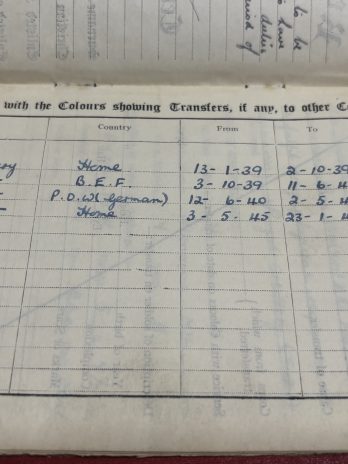 to be
to have
during
period of
with the Colours showing Transfers, if any, to other
Country From To
Home 13- 1-39 2-10-39
B.E.F. 3- 10-39 11- 6-4
P.O.W(German) 12- 6-40 2- 5-4
Home 3- 5- 45 23- 1-4